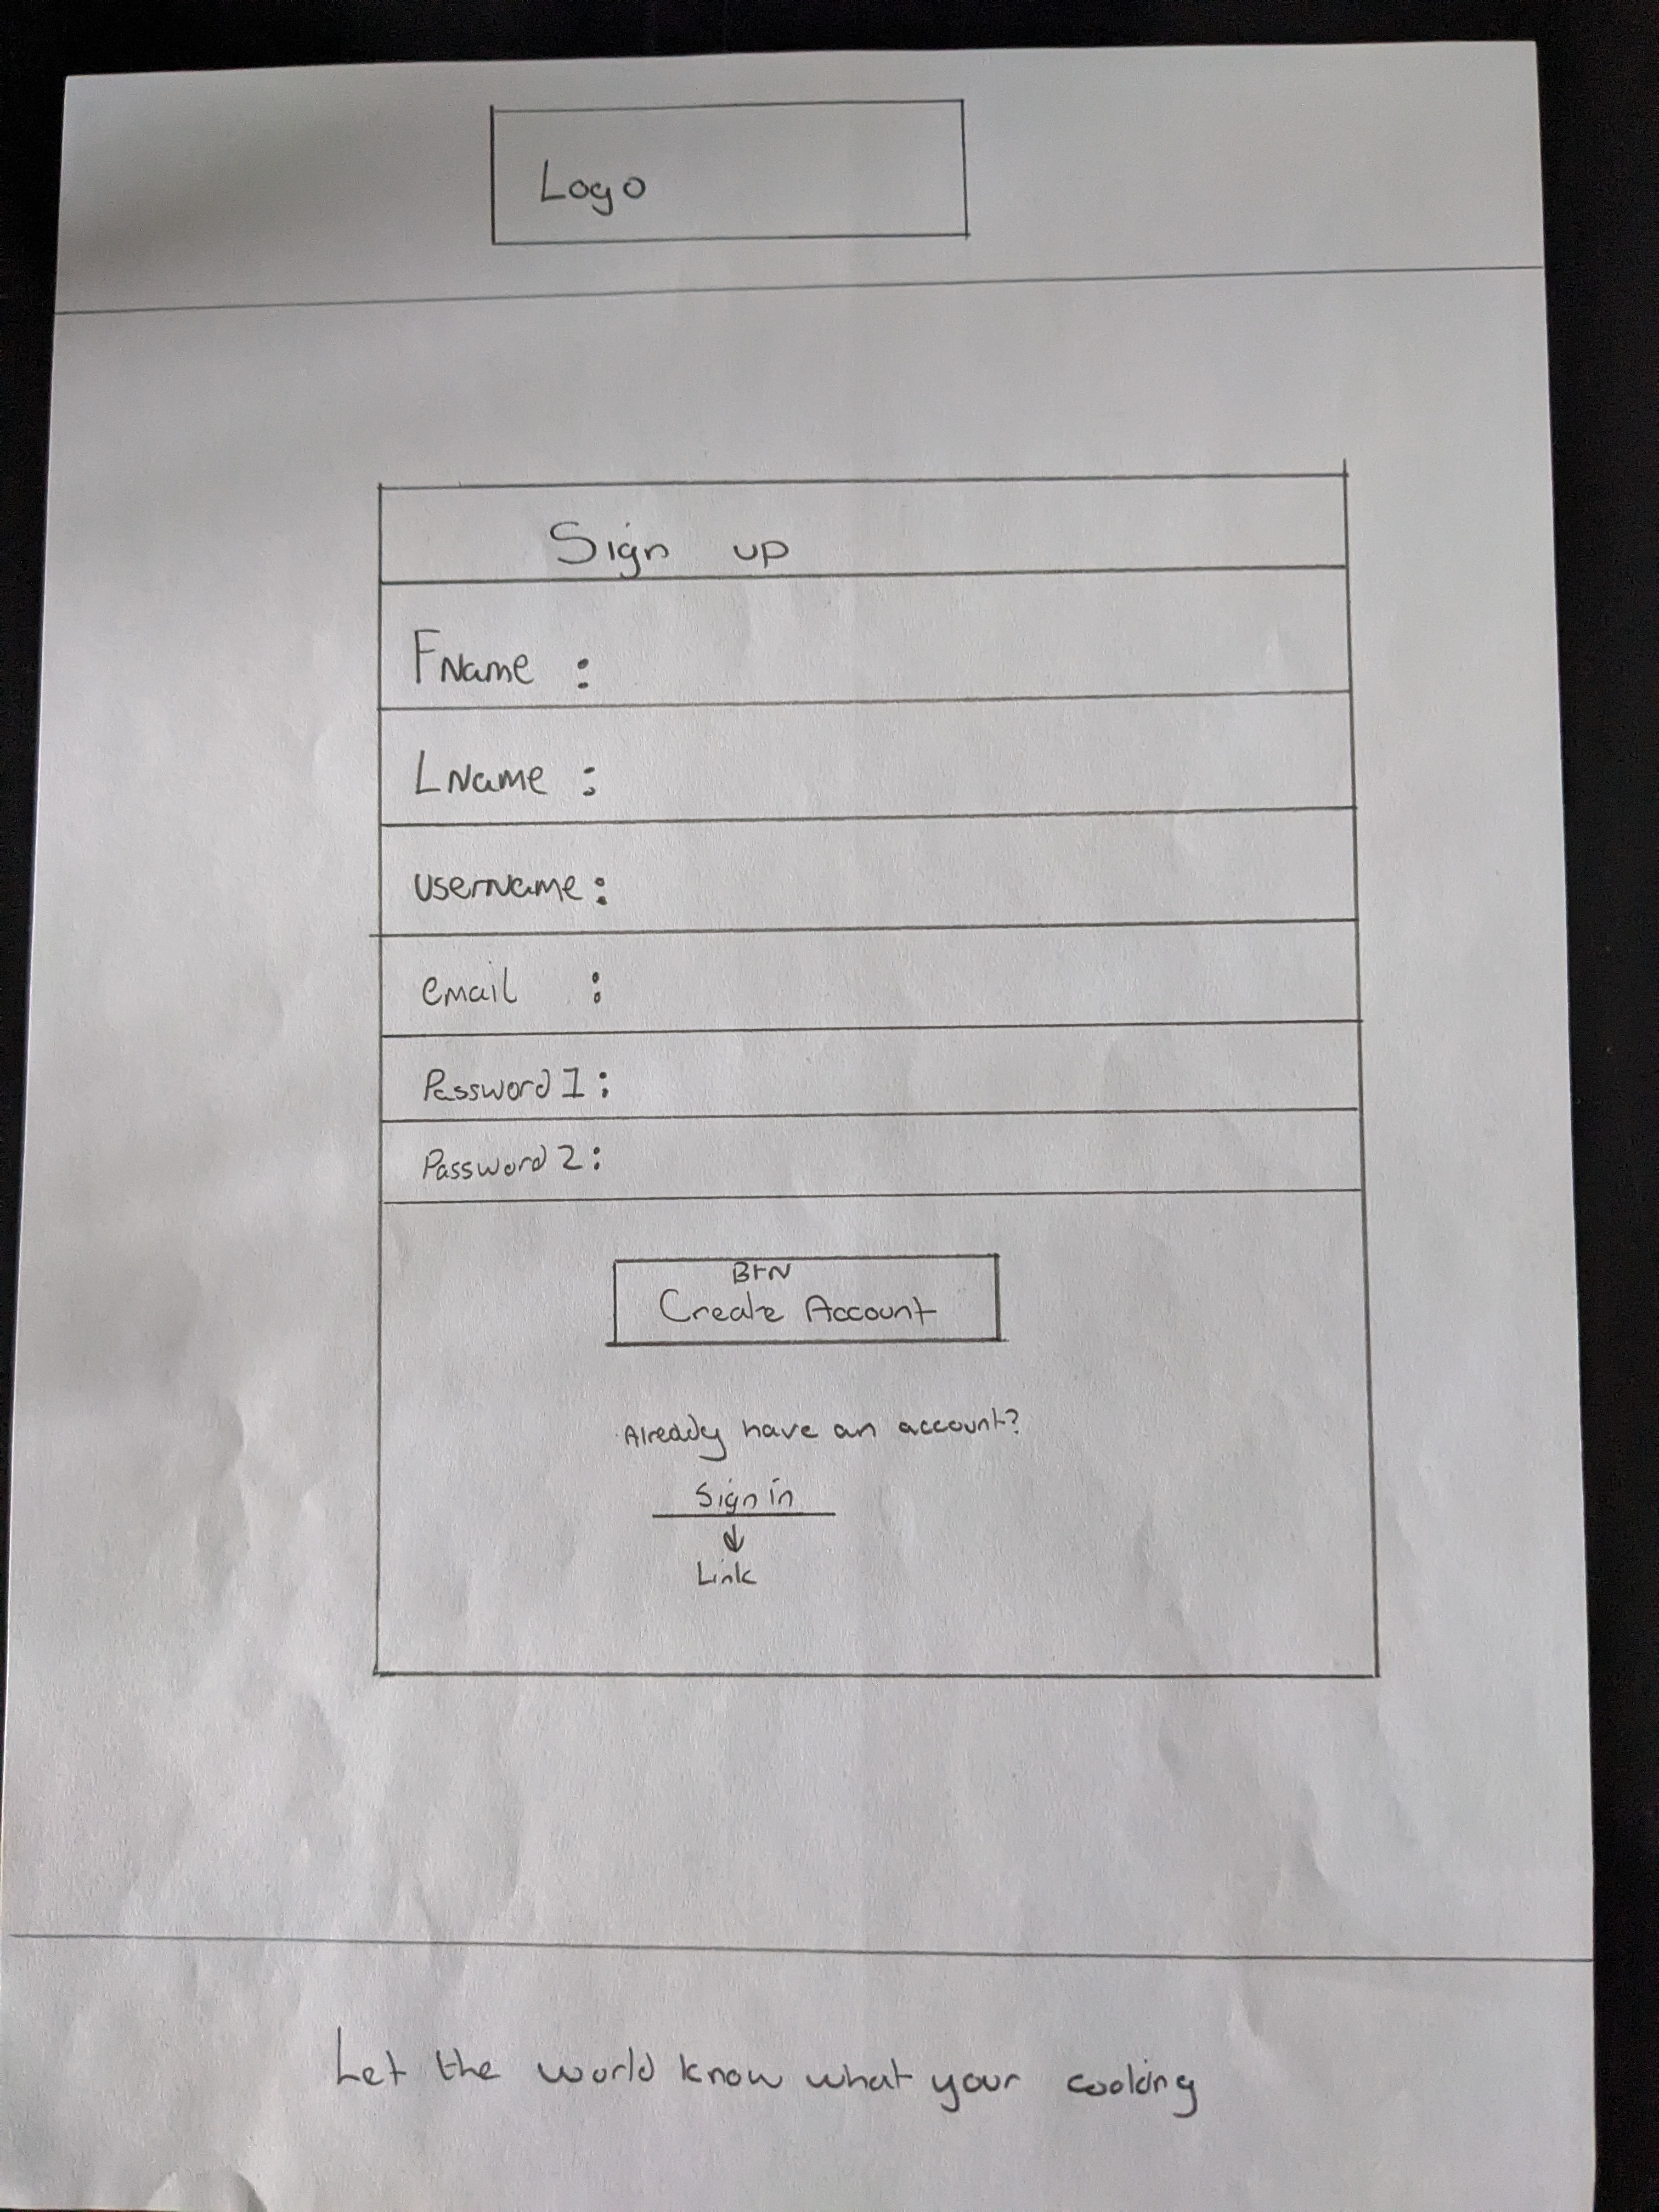 Logo
Sign up
FName :
LName :
username :
email :
Password 1 :
Password 2 :
BtN
Create Account
Already have an account?
Sign in
Link
Let the world know what your cooking